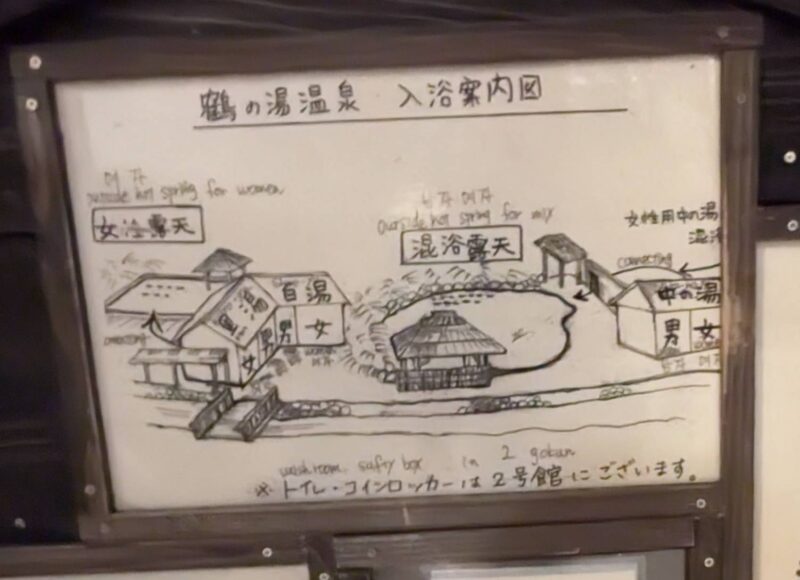 鶴の湯温泉 入浴案内図
여자
outside hot spring for women
女浴露天
남자 여자
outside hot spring for mix
混浴露天
女性用中の湯
混浴
connecting
白湯
黒湯
女 男 男 女
中の湯
男 女
connecting
women
여자
남자 여자
washroom, safty box in 2 gokan
※トイレ・コインロッカーは2号館にございます。